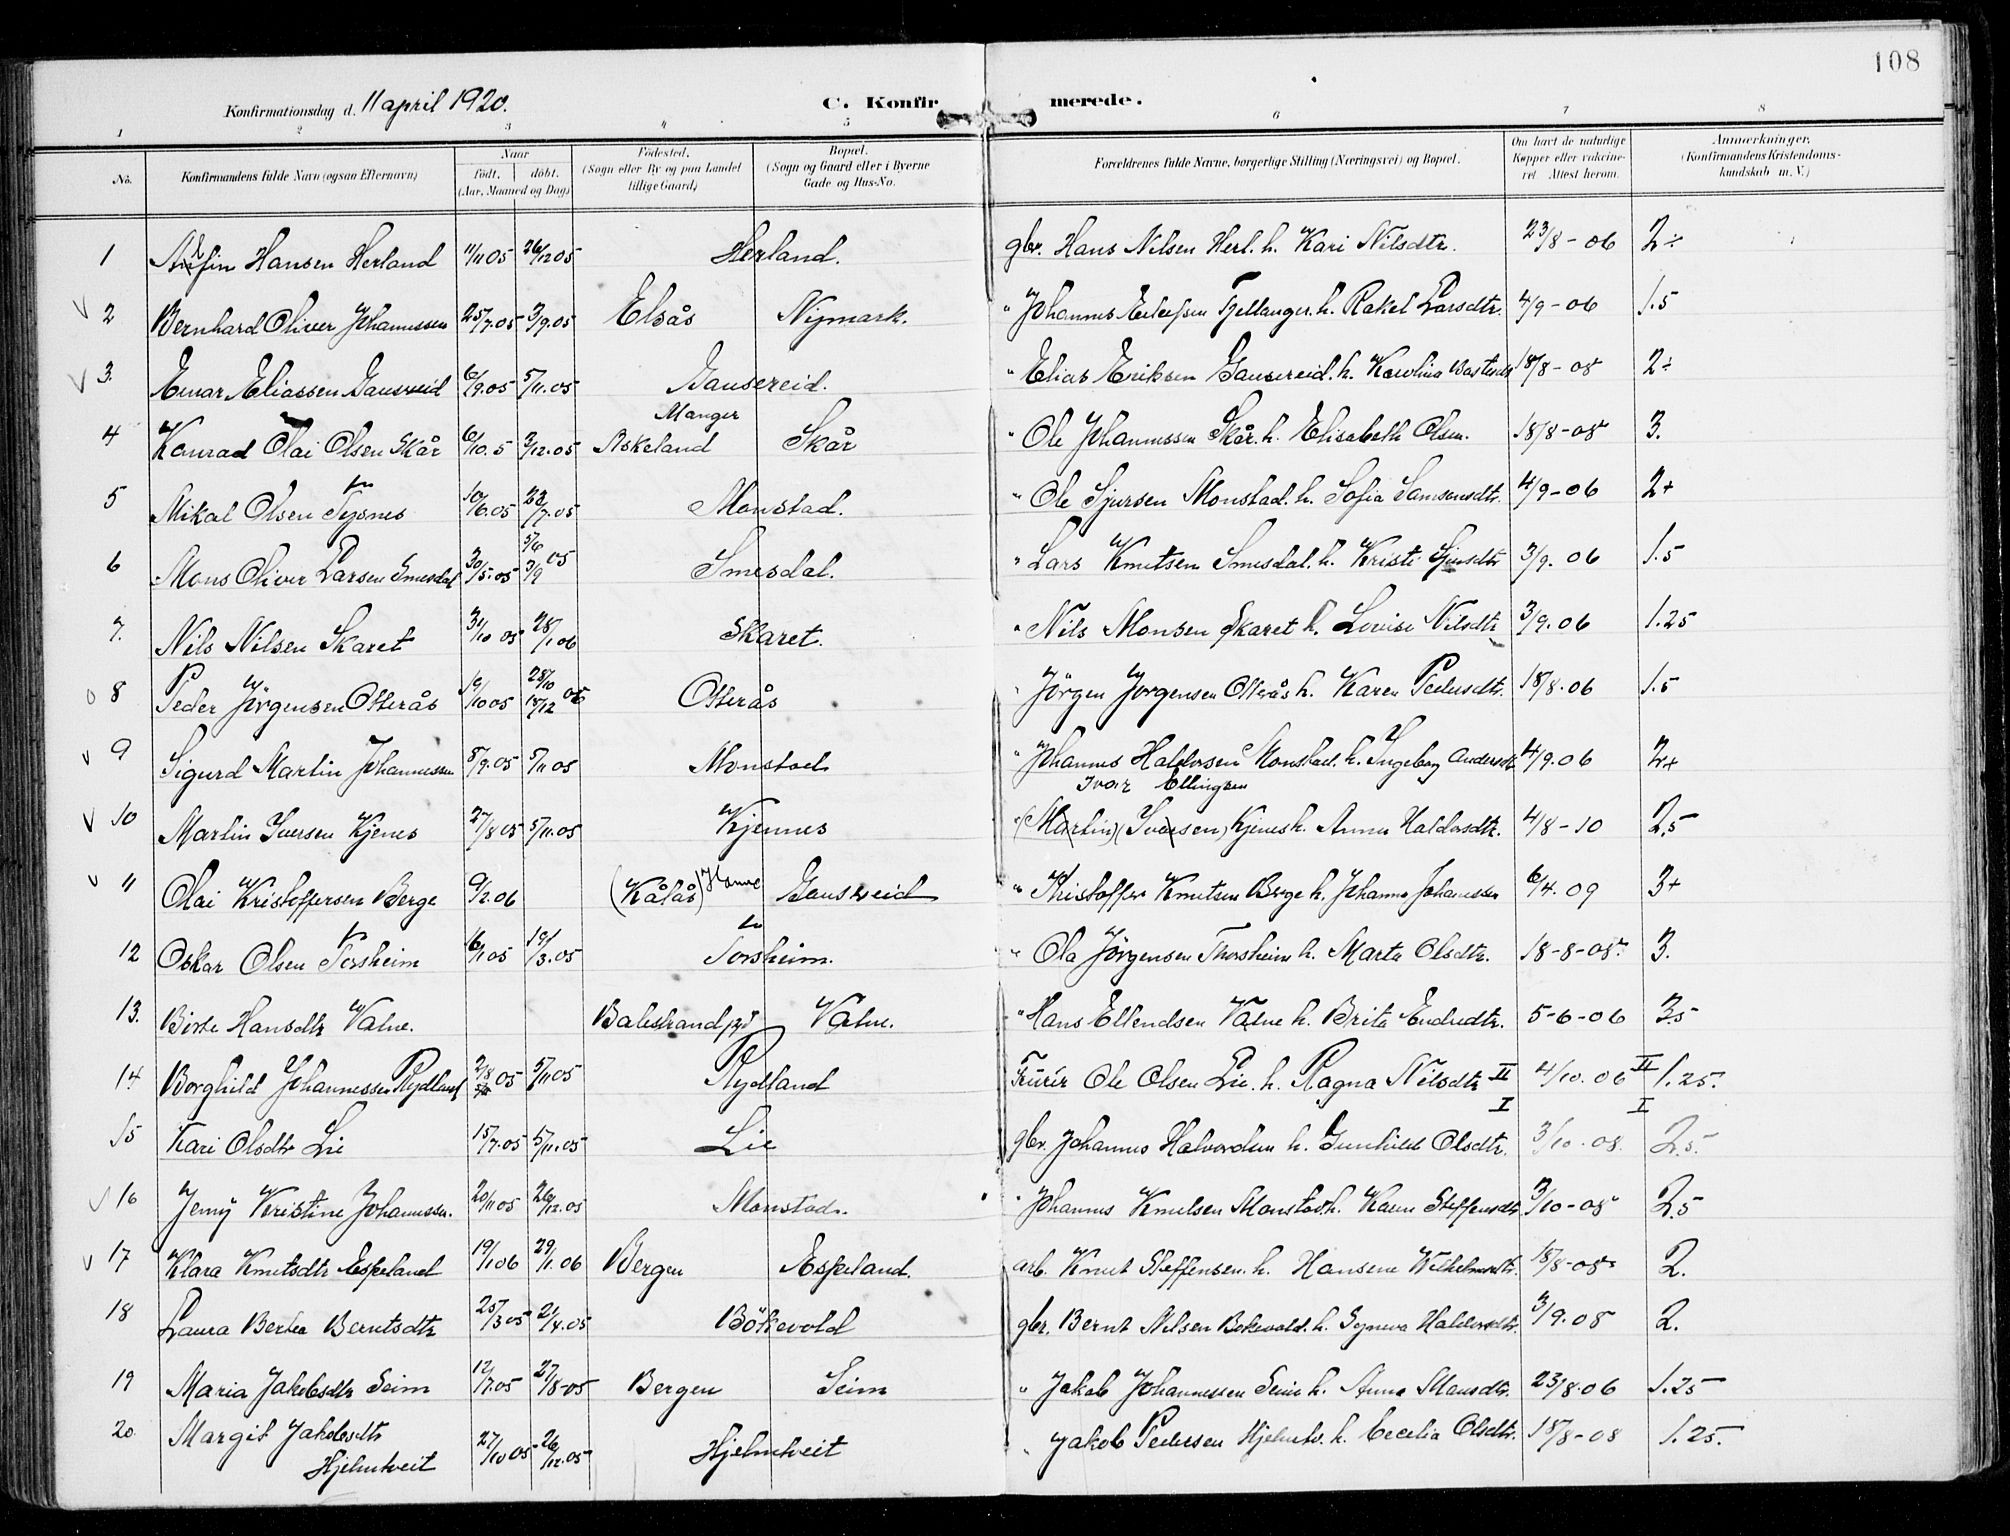 108
Konfirmationsdag d. 11 april 1920. C. Konfirmerede.
1 2 3 4 5 6 7 8
No. Konfirmandens fulde Navn (ogsaa Efternavn) Naar født. døbt. (Aar, Maaned og Dag) Fødested. (Sogn eller By og paa Landet tillige Gaard) Bopæl. (Sogn og Gaard eller i Byerne Gade og Hus-No. Forældrenes fulde Navne, borgerlige Stilling (Næringsvei) og Bopæl. Om havt de naturlige Kopper eller vakcineret. Attest herom. Anmerkninger. (Konfirmandens Kristendomskundskab m. V.)
1 Hansen Herland 11/11 05 26/12 05 Herland. gbr. Hans Nilsen Herl. h. Kari Nilsdtr. 23/8 - 06 2÷
2 Bernhard Oliver Johannessen 25/7.05 3/9.05 Elsås Nymark. " Johannes Fjellanger. h. Rakel Larsdtr. 4/9 - 06 1.5
3. Einar Eliassen Gausereid 6/9.05 5/11.05 Gausereid. " Elias Eriksen Gausereid. h. Karolina 18/8 - 08 2÷
4 Konrad Olai Olsen Skår 6/10.5 3/12.05 Manger Askeland Skår " Ole Johannessen Skår. h. Elisabeth Olsen. 18/8 - 08 3.
5 Mikal Olsen Tysnes 10/6.05 23/7.05 Monstad. " Ole Sjursen Monstad. h. Sofia Samsonsdtr. 4/9 - 06 2+
6 Mons Oliver Larsen Smesdal 30/5.05 5/6 3/9 05 Smesdal. " Lars Knutsen Smesdal. h. Kristi Sjursdtr 3/9. 06 1.5
7. Nils Nilsen Skaret 31/10 05 28/1 06 Skaret. " Nils Monsen Skaret h. Lovise Nilsdtr 3/9. 06 1.25
8 Peder Jörgensen Otterås 19/10 05 28/10 Otterås " Jörgen Jorgensen Otterås h. Karen Pedersdtr. 18/8. 06 1.5
9 Sigurd Martin Johannessen 8/9.05 5/11 05 Monstad " Johannes Haldorsen Monstad. h. Ingeborg Andersdtr 4/9.06 2+
Ivar Ellingsen
10 Martin Iversen Kjenes 27/8 05 5/11.05 Kjennes " (Martin) (Iversen) Kjenes h. Anna Haldorsdtr. 4/8 - 10 2,5
11 Olai Kristoffersen Berge 9/2.06 (Kålås) Gausereid " Kristoffer Knutsen Berge h. Johanna Johannessen 6/4. 09 3+
12 Oskar Olsen Torsheim 16/1 05 19/3.05 Torsheim. " Ola Jörgensen Thorsheim h. Marta Olsdtr. 18-8-08 3.
13. Birte Hansdtr Valne. Balestrand Valne. " Hans Ellendsen Valne h. Brita Endredtr. 5-6-06 3.5
14 Borghild Johannessen Rydland 2/8 05 5/11 05 Rydland Ole Olsen Lie. h. Ragna Nilsdtr II 4/10. 06 II 1.25.
I I
15 Kari Olsdtr Lie 15/7.05 5/11.05 Lie gbr. Johannes Halvordsen h. Gunhild Olsdtr. 3/10. 08. 2.5.
16 Jenny Kristine Johannessen. 20/11 05 26/12.05 Monstad. " Johannes Knutsen Monstad. h. Karen Steffensdtr 3/10 - 08 2.5
17 Klara Knutsdtr Espeland 19/1 06 29/1.06 Bergen Espeland. arb. Knut Steffensen. h. Hansene Wilhelmsdtr. 18/8-08 2.
18 Laura Bertha Berntsdtr 25/3 05 21/4.05 Bökevold gbr. Bernt Nilsen Bökevold. h. Synneva Haldorsdtr. 3/9.08 2.
19 Maria Jakobsdtr Seim 12/7.05 27/8-05 Bergen Seim " Jakob Johannessen Seim h. Anna Mansdtr. 23/8.06 1.25
20 Margit Jakobsdtr 27/10 05 26/12.05 Hjelmtveit " Jakob Pedersen Hjelmtv. h. Cecelia Olsdtr. 18/8 - 08 1.25.
Hjelmtveit